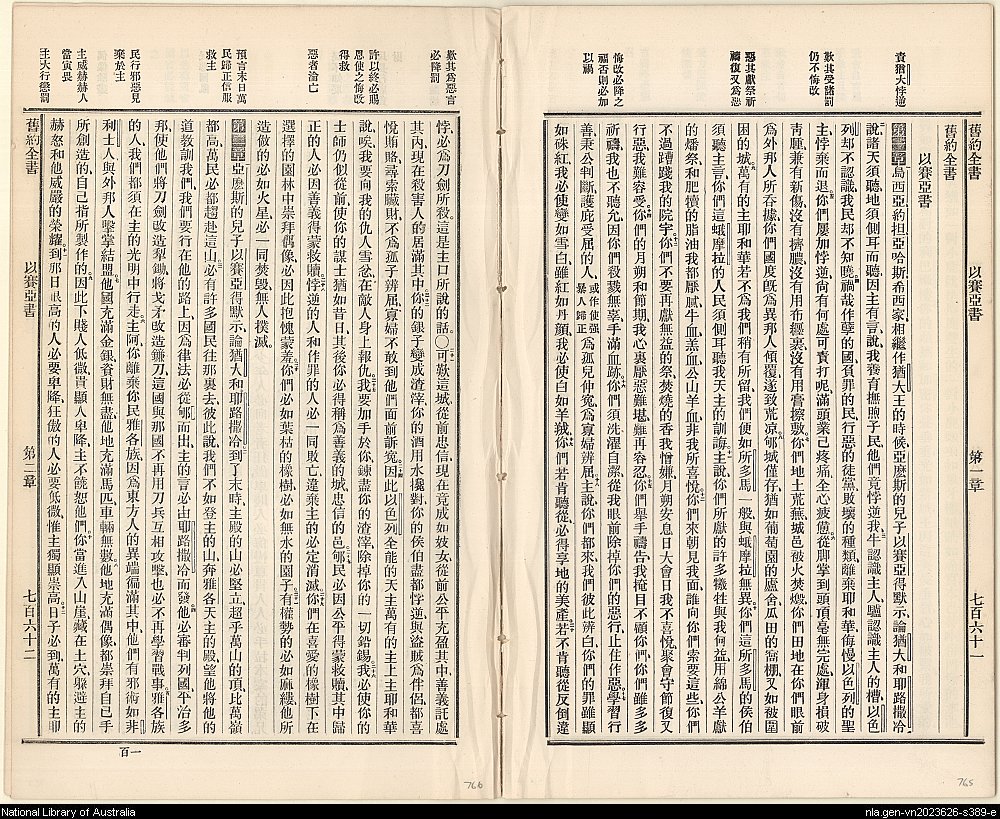 責猶大悖逆
歎其受諸罰
仍不悔改
惡其獻祭祈
禱復又為惡
悔改必降之
福否則必加
以禍
舊約全書
舊約全書 以賽亞書 第一章 七百六十一
以賽亞書
第一章烏西亞約坦亞哈斯希西家相繼作猶大王的時候亞麼斯的兒子以賽亞得默示論猶大和耶路撒冷
說諸天須聽地須側耳而聽因主有言說我養育撫煦子民他們竟悖逆我牛認識主人驢認識主人的槽以色
列却不認識我民却不知曉禍哉作孽的國負罪的民行惡的徒黨敗壞的種類離棄耶和華侮慢以色列的聖
主悖棄而退你們屢加悖逆尚有何處可責打呢滿頭業已疼痛全心疲憊從脚掌到頭頂毫無完處渾身損破
青腫兼有新傷沒有擠膿沒有用布纏裹沒有用膏擦敷你們地土荒蕪城邑被火焚燬你們田地在你們眼前
為外邦人所吞據你們國度旣為異邦人傾覆遂致荒涼郇城僅存猶如葡萄園的廬舍瓜田的窩棚又如被圍
困的城萬有的主耶和華若不為我們稍有所留我們便如所多馬一般與蛾摩拉無異你們這所多馬的侯伯
須聽主言你們這蛾摩拉的人民須側耳聽我天主的訓誨主說你們所獻的許多犧牲與我何益用綿公羊獻
的燔祭和肥犢的脂油我都厭膩牛血羔血公山羊血非我所喜悅你們來朝見我面誰向你們索要這些你們
不過蹧踐我的院宇你們不要再獻無益的祭焚燒的香我憎嫌月朔安息日大會日我不喜悅聚會守節復又
行惡我難容受你們的月朔和節期我心裏厭惡難堪難再容忍你們舉手禱告我掩目不顧你們你們雖多多
祈禱我也不聽允因你們殺戮無辜手滿血跡你們須洗濯自潔從我眼前除掉你們的惡行止住作惡學習行
善秉公判斷護庇受屈的人或作使強暴人歸正為孤兒伸寃為寡婦辨屈主說你們都來我們彼此辨白你們的罪雖顯
如硃紅我必使變如雪白雖紅如丹顏我必使白如羊羢你們若肯聽從必得享地的美產若不肯聽從反倒違
歎其為惡言
必降罰
許以終必賜
恩使之悔改
得救
惡者淪亡
預言末日萬
民歸正信服
救主
民行邪惡見
棄於主
主威赫赫人
當寅畏
主大行懲罰
悖必為刀劍所殺這是主口所說的話〇可歎這城從前忠信現在竟成如妓女從前公平充盈其中善義託處
其內現在殺害人的居滿其中你的銀子變成渣滓你的酒用水攙對你的侯伯盡都悖逆與盜賊為伴侶都喜
悅賄賂尋索贓財不為孤子辨屈寡婦不敢到他們面前訴寃因此以色列全能的天主萬有的主上主耶和華
說唉我要向我的仇人雪忿在敵人身上報仇我要加手於你鍊盡你的渣滓除掉你的一切鉛錫我必使你的
士師仍似從前使你的謀士猶如昔日其後你必得稱為善義的城忠信的邑郇民必因公平得蒙救贖其中歸
正的人必因善義得蒙救贖悖逆的人和作罪的人必一同敗亡違棄主的必定消滅你們在喜愛的橡樹下在
選擇的園林中崇拜偶像必因此抱愧蒙羞你們必如葉枯的橡樹必如無水的園子有權勢的必如麻縷他所
造做的必如火星必一同焚毀無人撲滅
第二章亞麼斯的兒子以賽亞得默示論猶大和耶路撒冷到了末時主殿的山必堅立超乎萬山的頂比萬嶺
都高萬民必都趨赴這山必有許多國民往那裏去彼此說我們不如登主的山奔雅各天主的殿望他將他的
道敎訓我們我們要行在他的路上因為律法必從郇而出主的言必由耶路撒冷而發他必審判列國平治多
邦使他們將刀劍改造犁鋤將戈矛改造鐮刀這國與那國不再用刀兵互相攻擊也必不再學習戰事雅各族
的人我們都須在主的光明中行走主阿你離棄你民雅各族因為東方人的異端徧滿其中他們有邪術如非
利士人與外邦人擊掌結盟他國充滿金銀貲財無盡他地充滿馬匹車輛無數他地充滿偶像都崇拜自己手
所創造的自己指所製作的因此下賤人低微貴顯人卑降主不饒恕他們你當進入山崖藏在土穴躲避主的
赫怒和他威嚴的榮耀到那日眼高的人必要卑降狂傲的人必要低微惟主獨顯崇高日子必到萬有的主耶
舊約全書 以賽亞書 第二章 七百六十二
一百
766
765
National Library of Australia
nla.gen-vn2023626-s389-e